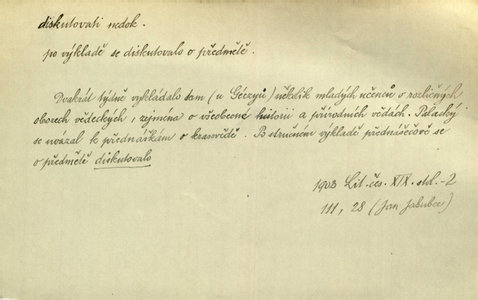 diskutovati nedok.
po výkladě se diskutovalo o předmětě.
Dvakrát týdně vykládalo tam (u Géczyů) několik mladých učenců o rozličných
oborech vědeckých, zejména o všeobecné historii a přírodních vědách. Palacký
se uvázal k přednáškám o krasovědě. Po stručném výkladě přednášečově se
o předmětě diskutovalo
1903 Lit. čes. XIX. stol.-2
111, 28 (Jan Jakubec)